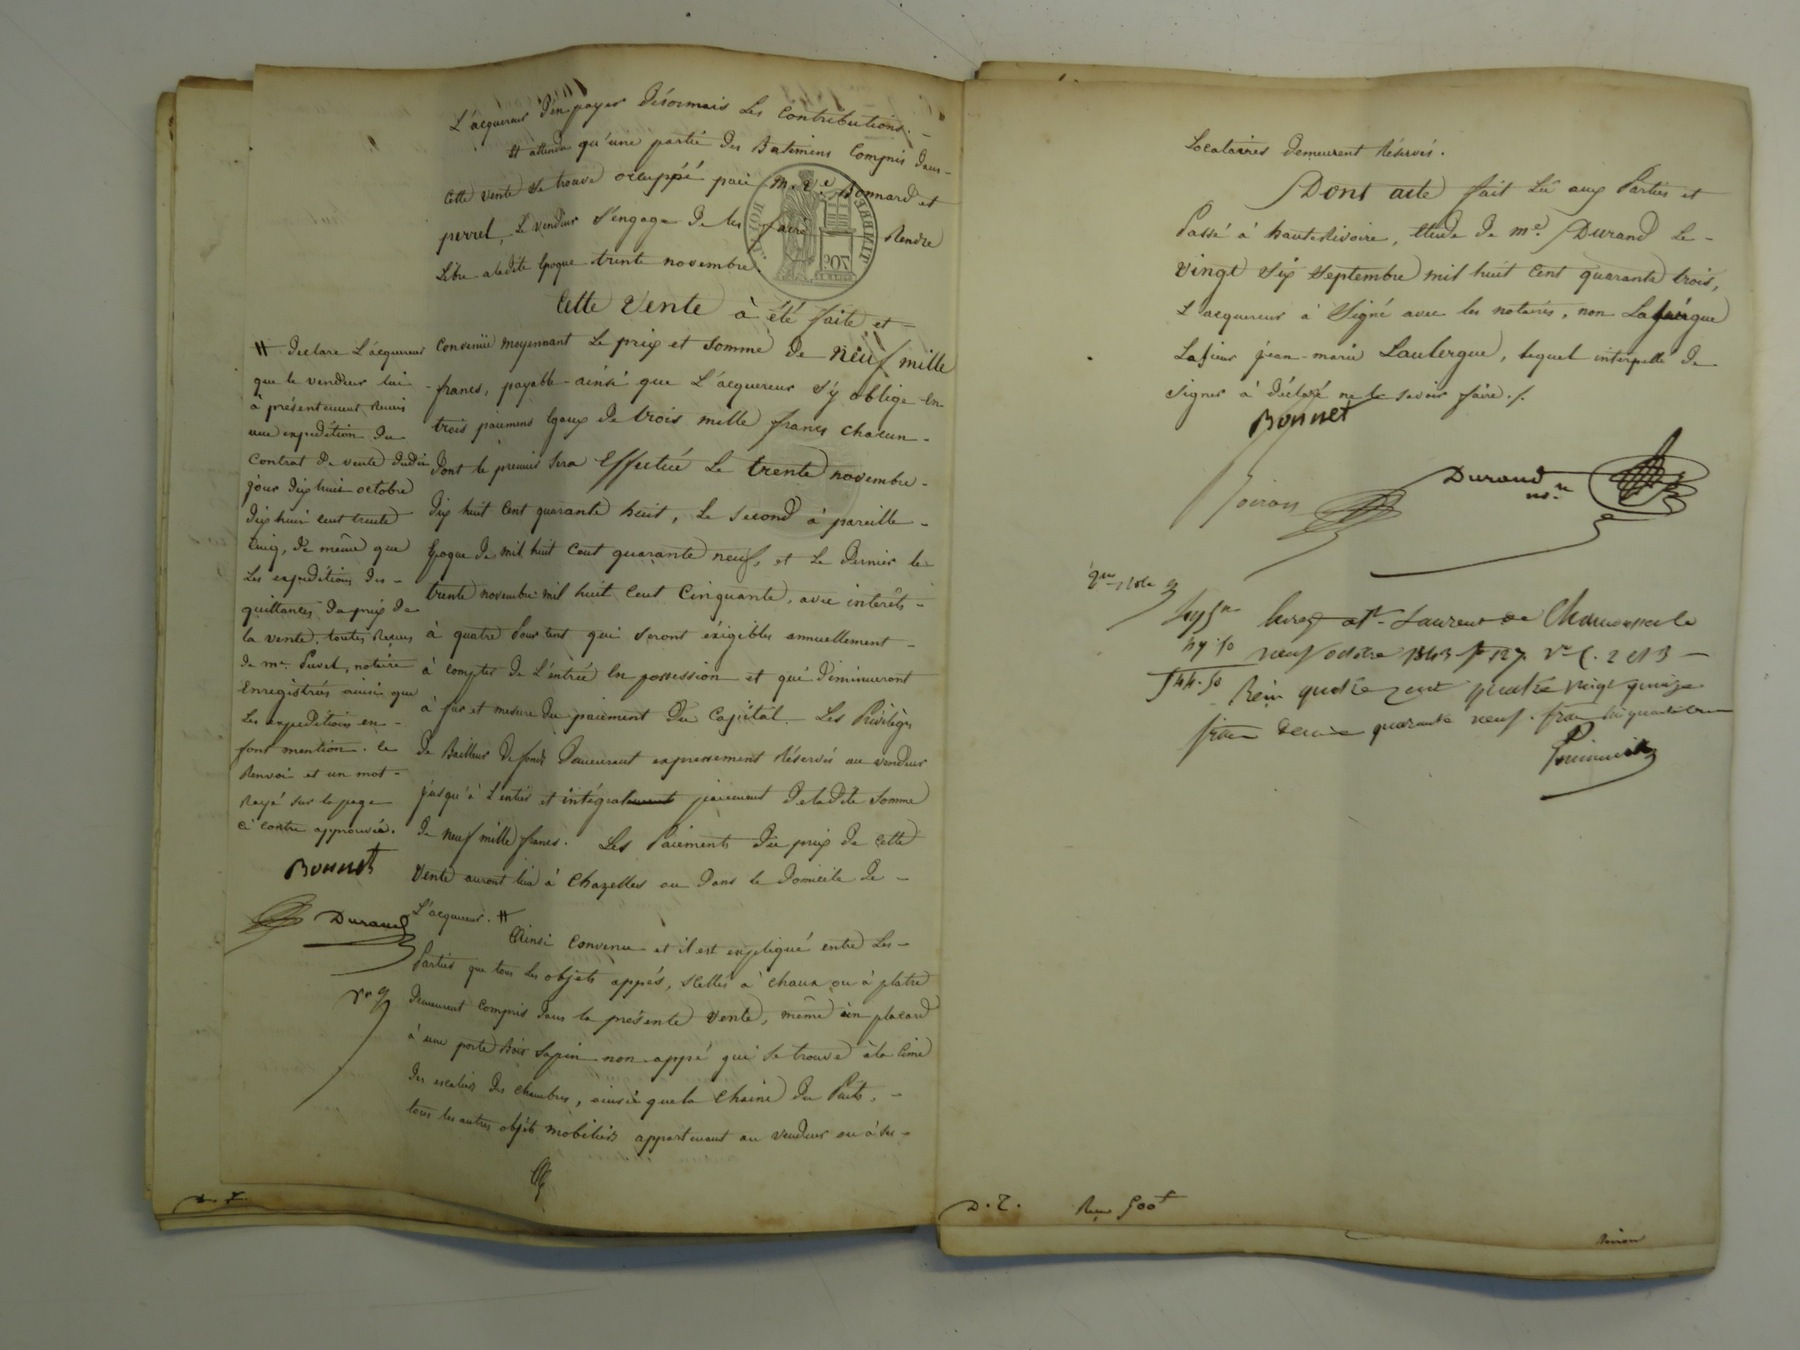 L'acquereur d'en payer désormais les Contributions. –
Et attendu qu'une partie des Batimens Compris dans –
Cette vente se trouve occuppée par M. Ve Bonnard et
perrel, Le vendeur s'engage de les faire Rendre
Libre aladite Epoque trente novembre.
Cette Vente à été faite et –
Convenüe moyennant Le prix et Somme de neuf mille
francs, payable ainsi que L'acquereur s'y oblige en
trois paiemens Egaux de trois mille francs chacun –
dont le premier sera Effectué Le trente novembre –
dix huit Cent quarante huit, Le Second à pareille –
Epoque de mil huit Cent quarante neuf, et Le Dernier le
trente novembre mil huit Cent Cinquante, avec intérêts –
à quatre pour cent qui seront éxigibles annuellement –
à compter de L'éntrée En possession et qui diminueront
à fur et mesure du paiement du Capital. Les Privilèges
de Bailleur de fonds Demeurent expressement Réservés au vendeur
jusqu'à L'entier et intégral paiement de ladite Somme
de neuf mille francs. Les Paiements du prix de Cette
Vente auront lieu à Chazelles ou dans le Domicile de –
L'acquereur. #
Ainsi Convenu et il est expliqué entre Les –
Parties que tous les objets appés, scellés à chaux ou à platre
Demeurent Compris dans la présente Vente, même un placard
à une porte Bois Sapin non appé qui se trouve à la Cime
des escaliers des chambres, ainsi que la Chaine du Puits, –
tous les autres objets mobiliers appartenant au vendeur ou à ses –
# déclare L'acquereur
que le vendeur lui –
à présentement Remis
une expédition du
Contrat de vente dudit
jour dix huit octobre
dix huit Cent trente
Cinq, de même que
Les expéditions des –
quittances du prix de
la vente, toutes Recues
de me. notaire
Enregistrés ainsi que
Les expéditions en –
font mention. le
Renvoi et un mot –
Rayé sur la page
Ci Contre approuvés.
Bonnet
Durand
D. T.
Locataires demeurent Réservés.
Dont acte fait Lu aux Parties et
Passé à hauterivoire, étude de me. Durand Le –
vingt six septembre mil huit Cent quarante trois,
L'acquereur à Signé avec les notaires, non
Le sieur jean-marie Laubergue, lequel interpellé de
signer à déclaré ne le savoir faire ./.
Bonnet
Durand nre
Enreg à St Laurent de Chamousset le
neuf octobre 1843 fo 127 Vo C. 2 et 3 –
Recu quatre cent quatre vingt quinze
francs decime quarante neuf francs cinquante cen
D. T. Recu 500f